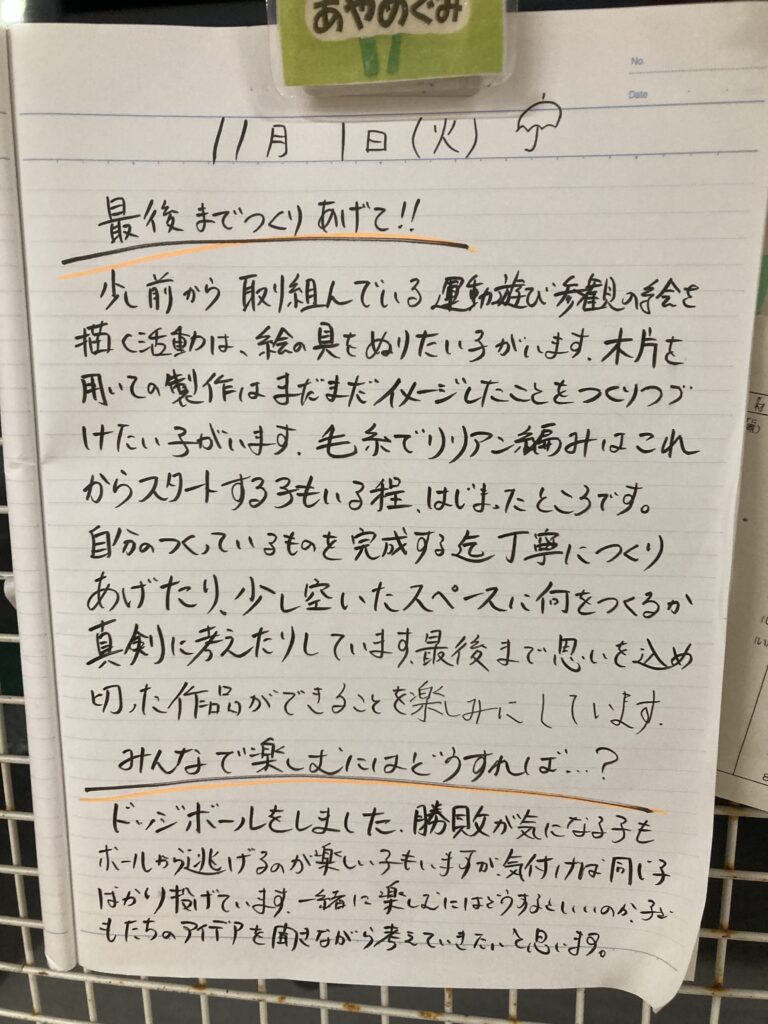 あやめぐみ
No.
Date
11月 1日(火)
最後までつくりあげて!!
少し前から取り組んでいる運動遊び参観の絵を
描く活動は、絵の具をぬりたい子がいます。木片を
用いての製作はまだまだイメージしたことをつくりつづ
けたい子がいます。毛糸でリリアン編みはこれ
からスタートする子もいる程、はじまったところです。
自分のつくっているものを完成する迄丁寧につくり
あげたり、少し空いたスペースに何をつくるか
真剣に考えたりしています。最後まで思いを込め
切った作品ができることを楽しみにしています。
みんなで楽しむにはどうすれば…?
ドッジボールをしました。勝敗が気になる子も
ボールから逃げるのが楽しい子もいますが、気付けば同じ子
ばかり投げています。一緒に楽しむにはどうするといいのか、子ど
もたちのアイデアを聞きながら考えていきたいと思います。